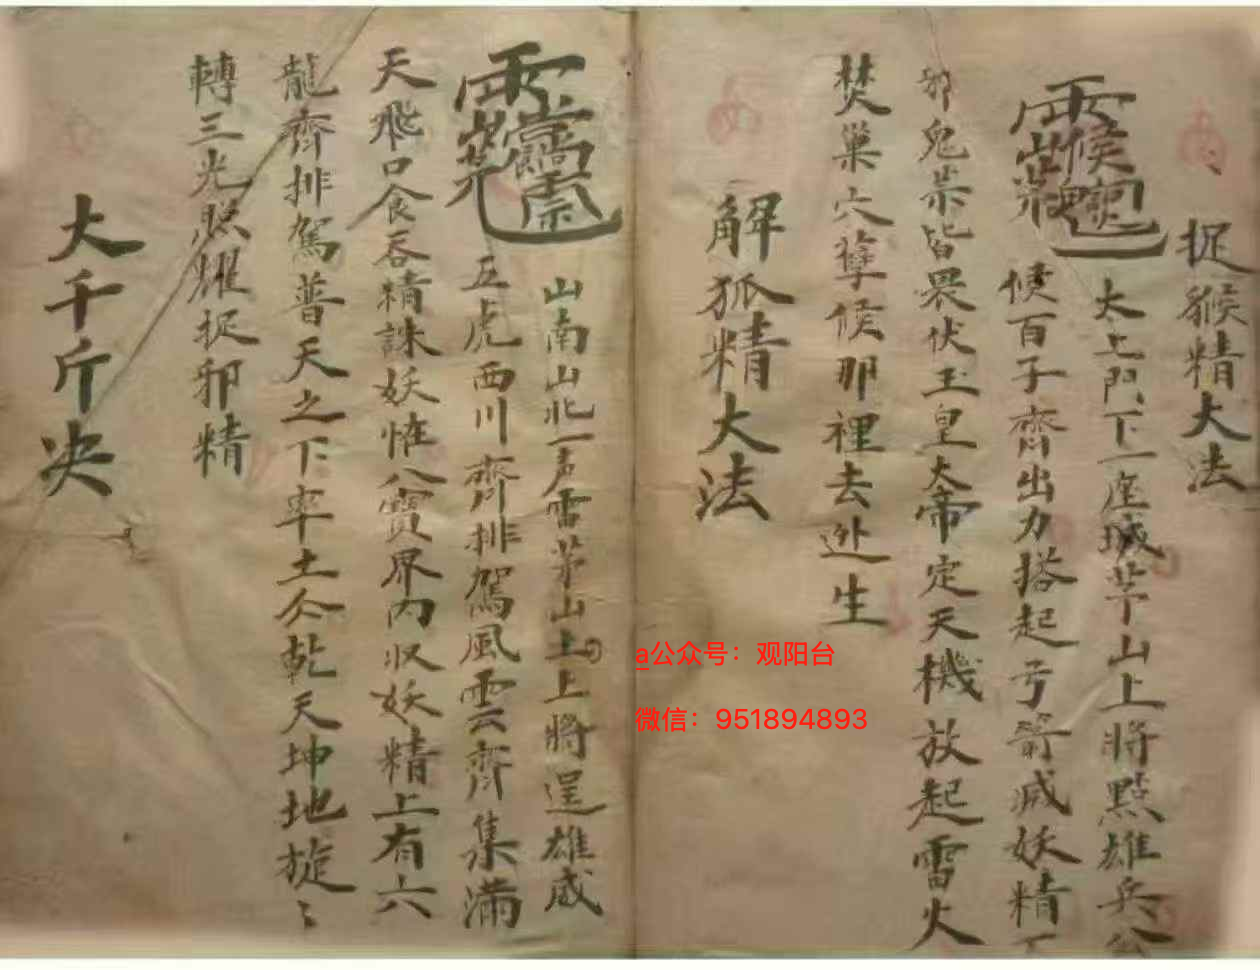 捉猴精大法
太上門下一座城茅山上將點雄兵
候百子齊出力搭起弓箭滅妖精
邪鬼祟皆畏伏玉皇大帝定天機放起雷火
焚巢穴孽候那裡去逃生
解狐精大法
山南山北一声雷茅山上上將逞雄威
五虎西川齊排駕風雲齊集滿
天飛口食吞精誅妖惟八寶界內収妖精上有六
龍齊排駕普天之下率土仝乾天坤地旋〻
轉三光照耀捉邪精
大千斤决
a公众号：观阳台
微信：951894893